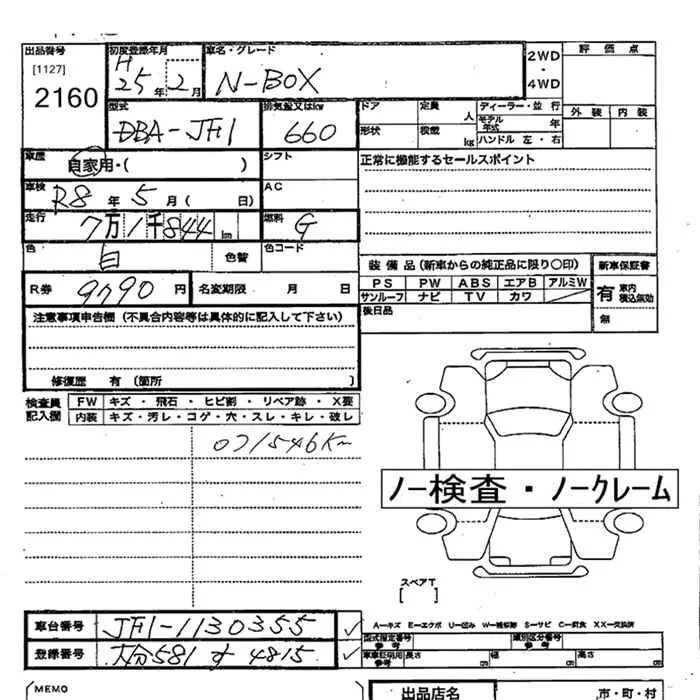 出品番号 初度登録年月 車名・グレード 2WD・4WD 評価点
[1127] H25年2月 N-BOX
2160
型式 排気量又はkw ドア 定員 人 ディーラー・並行 外装 内装
DBA-JF1 660 形状 積載 kg モデル年式 年
ハンドル 左・右
車歴 自家用・( ) シフト 正常に機能するセールスポイント
車検 R8年5月( 日) AC
走行 7万1千844km 燃料 G
色 白 色替 色コード
装備品(新車からの純正品に限り○印) 新車保証書
R券 9790円 名変期限 月 日 PS PW ABS エアB アルミW 有 車内 積込無効
サンルーフ ナビ TV カワ
注意事項申告欄(不具合内容等は具体的に記入して下さい) 後日品 無
修復歴 有(箇所 )
検査員記入欄 FW キズ・飛石・ヒビ割・リペア跡・X要
内装 キズ・汚レ・コゲ・穴・スレ・キレ・破レ
071546Km
ノー検査・ノークレーム
スペアT
[ ]
車台番号 JF1-1130355 ✓ A—キズ E—エクボ U—凹み W—補修跡 S—サビ C—腐食 XX—交換済
型式指定番号 参考 類別区分番号 参考
登録番号 大分581す4815 ✓ 車車証明用 参考 長さ cm 幅 cm 高さ cm
MEMO 出品店名 市・町・村